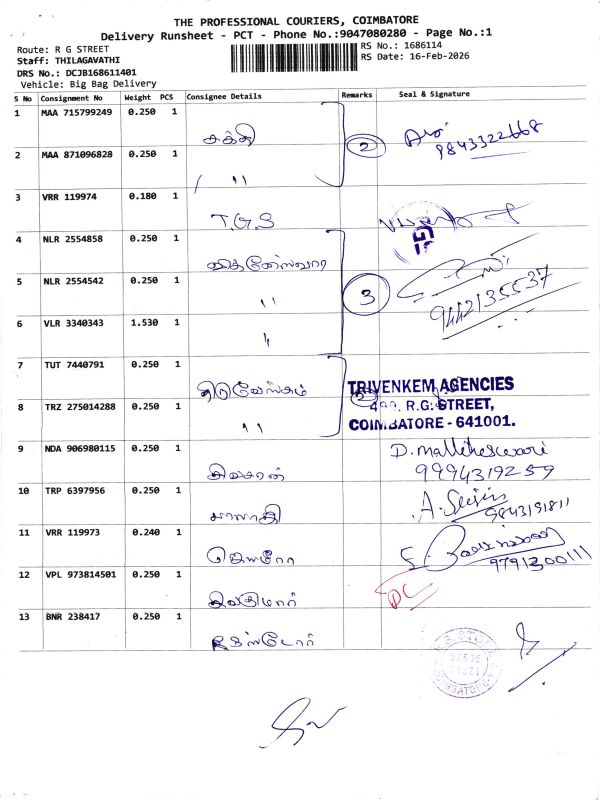 THE PROFESSIONAL COURIERS, COIMBATORE
Delivery Runsheet - PCT - Phone No.:9047080280 - Page No.:1
Route: R G STREET
RS No.: 1686114
Staff: THILAGAVATHI
RS Date: 16-Feb-2026
DRS No.: DCJB168611401
Vehicle: Big Bag Delivery
S No Consignment No Weight PCS Consignee Details Remarks Seal & Signature
1 MAA 715799249 0.250 1
சக்தி 2 9843322668
2 MAA 871096828 0.250 1
" 
3 VRR 119974 0.180 1
T.G.S
4 NLR 2554858 0.250 1
5 NLR 2554542 0.250 1
" 3 9442135537
6 VLR 3340343 1.530 1
"
7 TUT 7440791 0.250 1
2 TRIVENKEM AGENCIES
8 TRZ 275014288 0.250 1
499, R.G. STREET,
" COIMBATORE - 641001.
9 NDA 906980115 0.250 1
D. Malliheswari
9994319259
10 TRP 6397956 0.250 1
பாலாஜி 9843191811
11 VRR 119973 0.240 1
9791300111
12 VPL 973814501 0.250 1
DC
13 BNR 238417 0.250 1